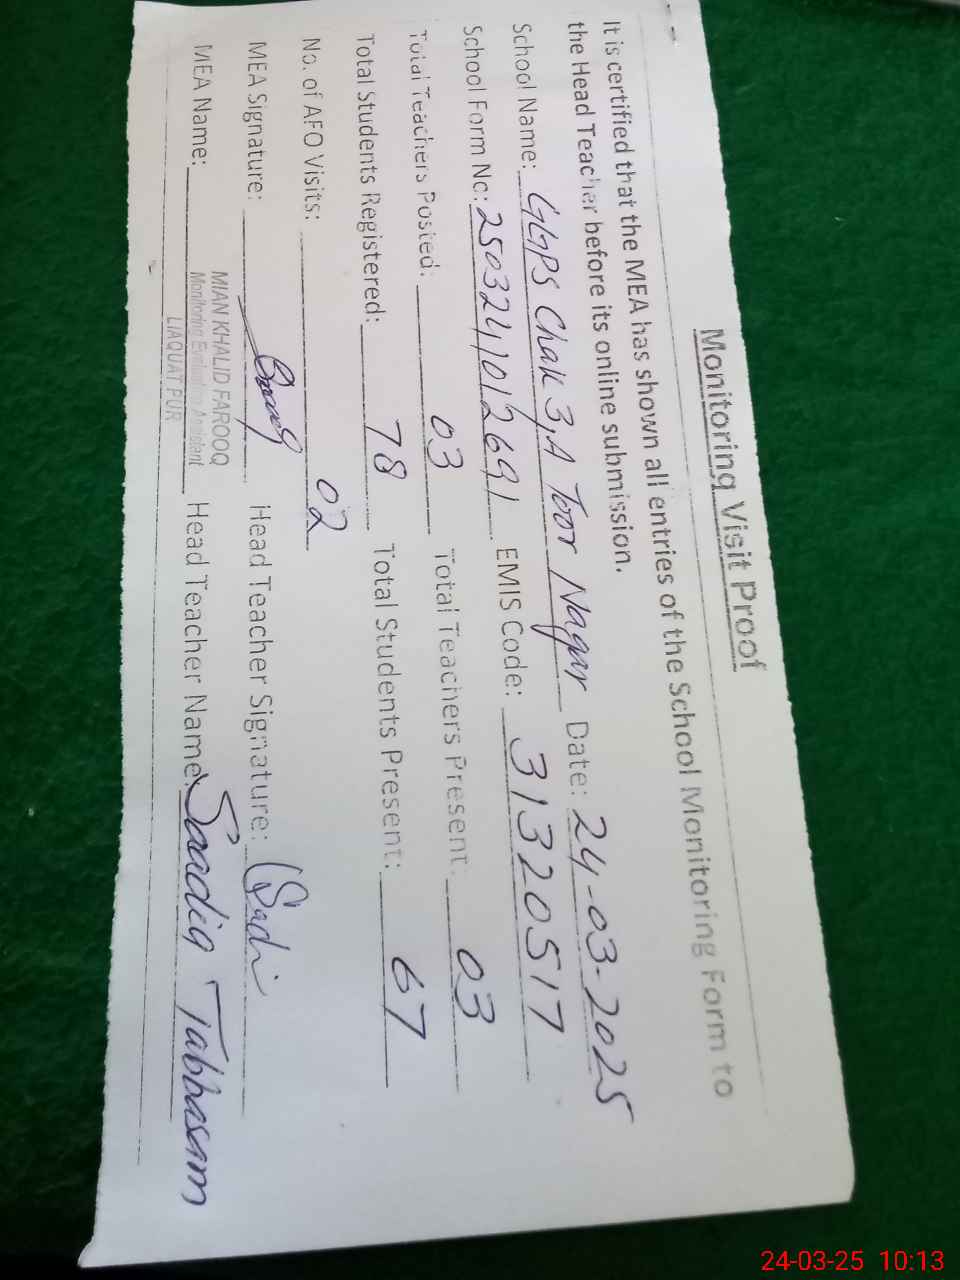 Monitoring Visit Proof
It is certified that the MEA has shown all entries of the School Monitoring Form to
the Head Teacher before its online submission.
School Name: GGPS Chak 3,A Toor Nagar Date: 24-03-2025
School Form No: 2503241012691 EMIS Code: 31320517
Total Teachers Posted: 03 Total Teachers Present: 03
Total Students Registered: 78 Total Students Present: 67
No. of AFO Visits: 02
MEA Signature: Head Teacher Signature:
MEA Name: MIAN KHALID FAROOQ Head Teacher Name: Saadia Tabbasam
Monitoring Evaluation Assistant
LIAQUAT PUR
24-03-25 10:13